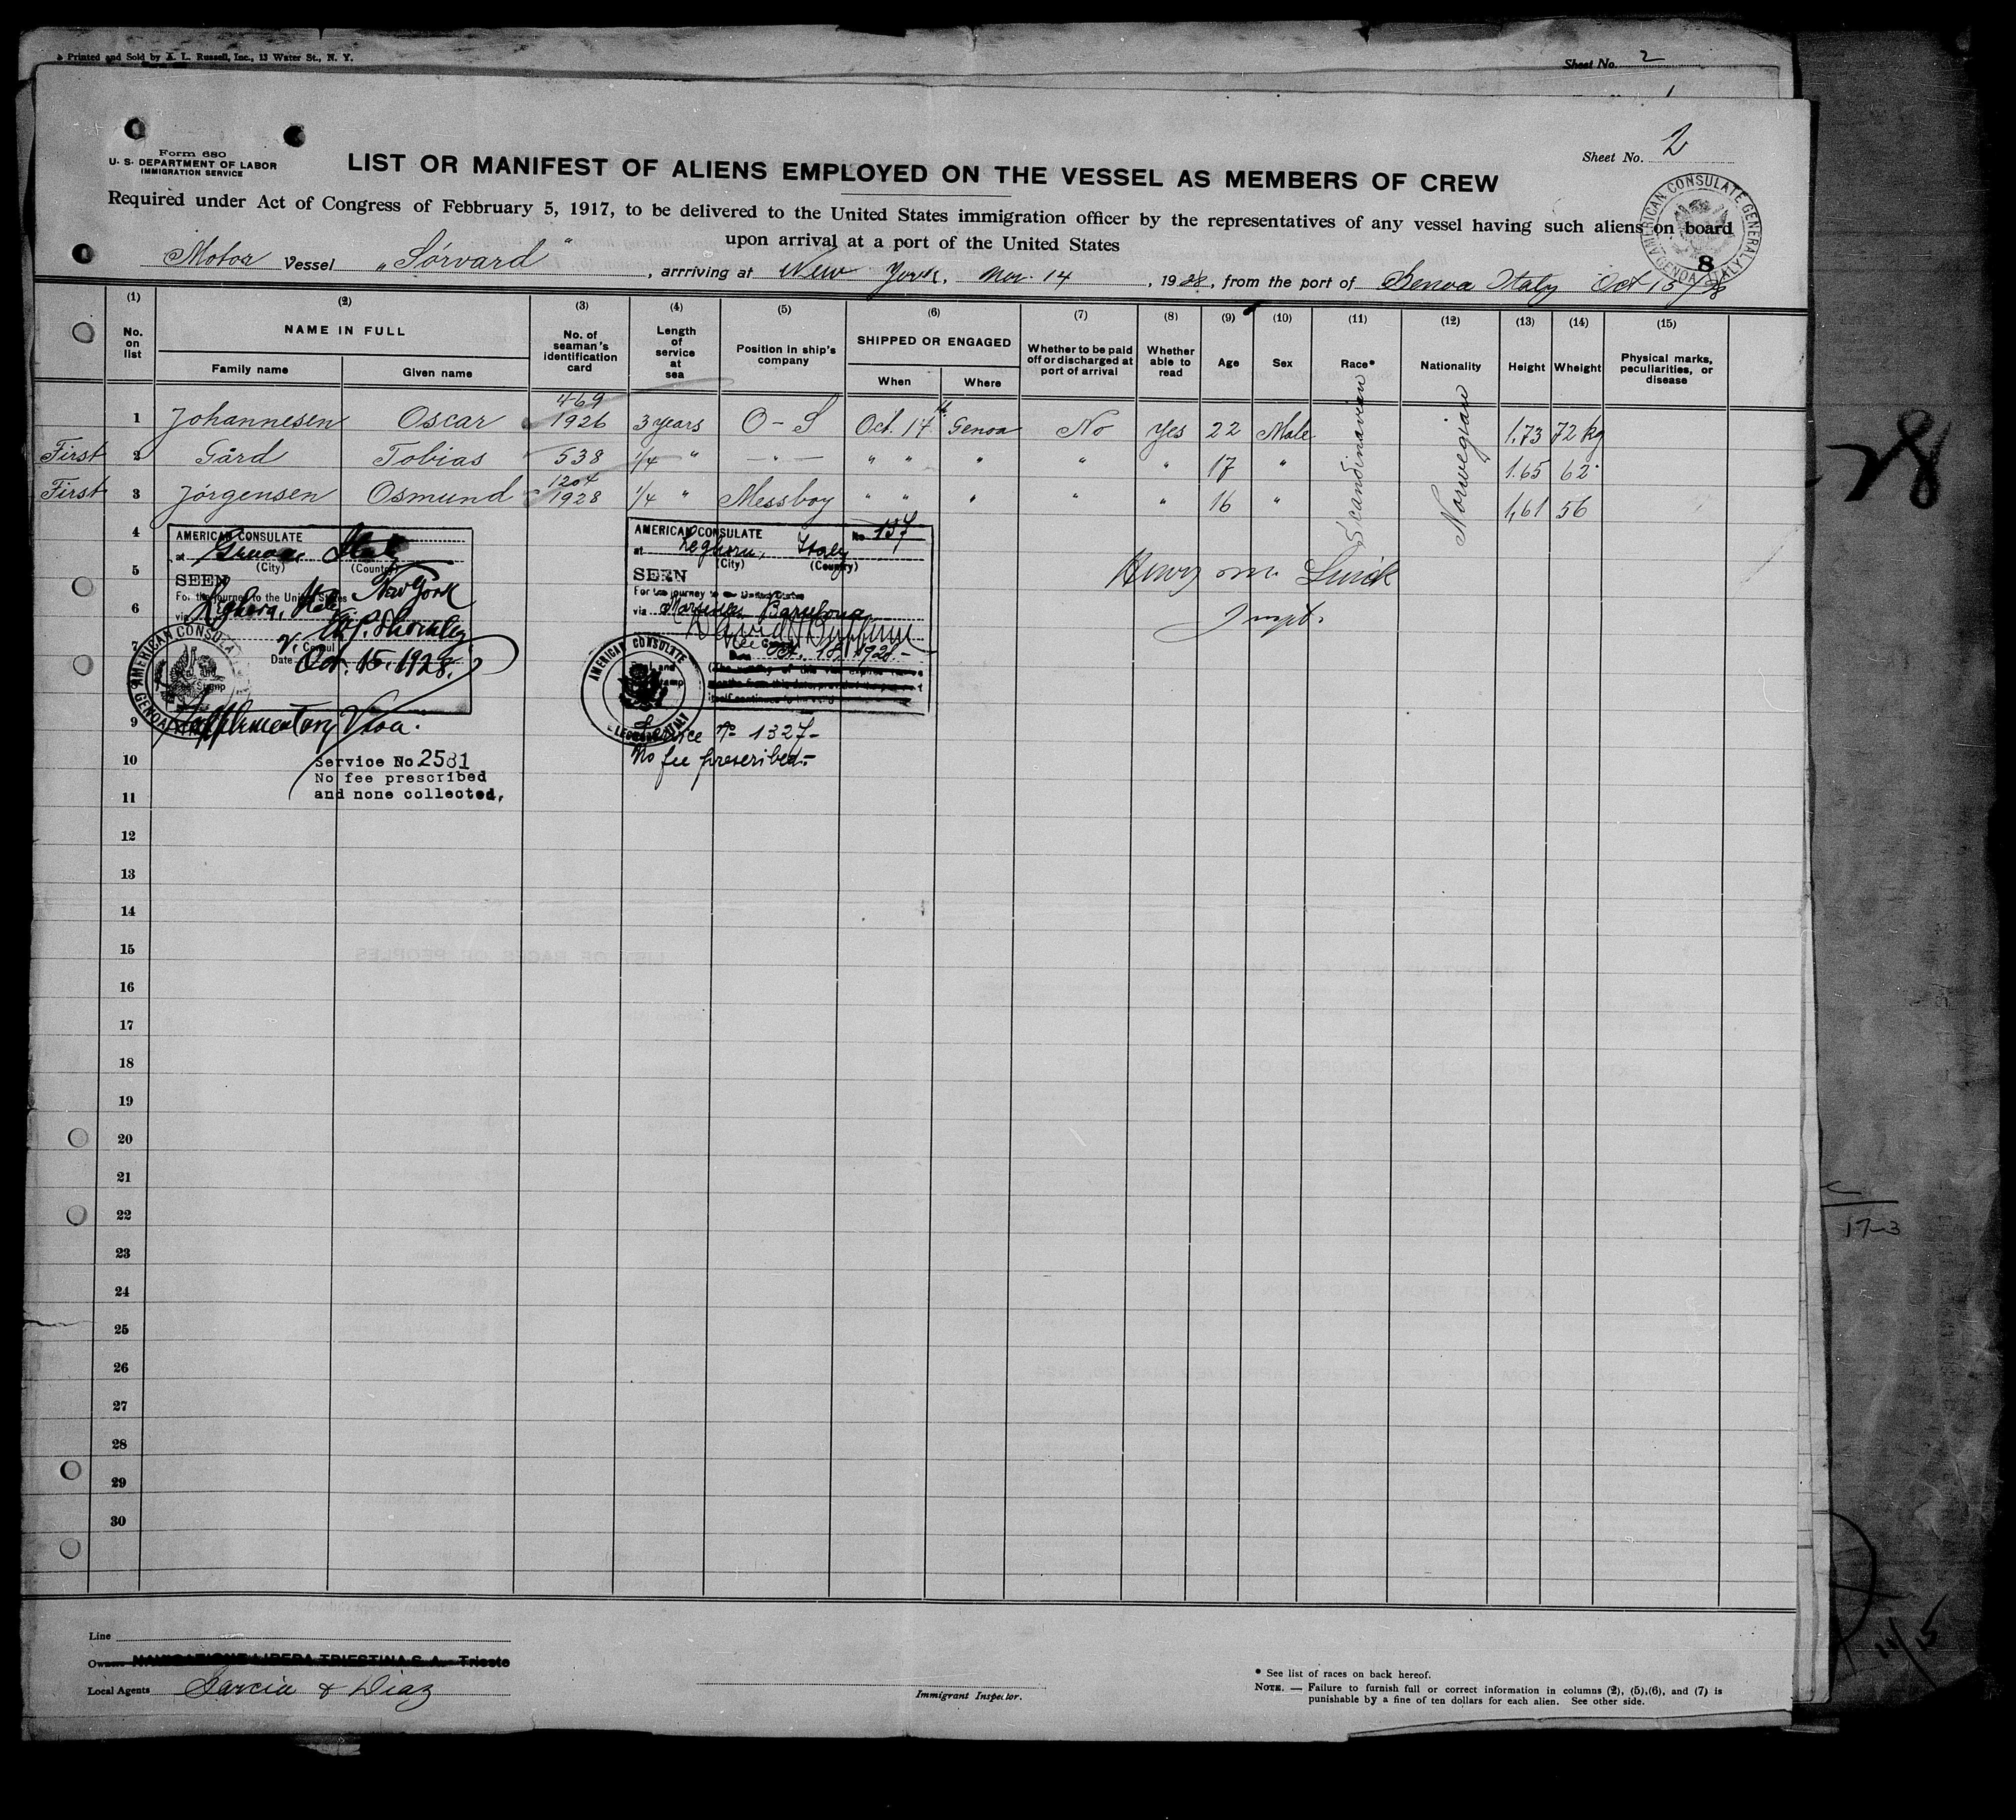 Printed and Sold by A. L. Russell, Inc., 13 Water St., N. Y.
Sheet No. 2
Form 680
U. S. DEPARTMENT OF LABOR
IMMIGRATION SERVICE
Sheet No. 2
LIST OR MANIFEST OF ALIENS EMPLOYED ON THE VESSEL AS MEMBERS OF CREW
Required under Act of Congress of Febbruary 5, 1917, to be delivered to the United States immigration officer by the representatives of any vessel having such aliens on board
upon arrival at a port of the United States
AMERICAN CONSULATE GENERAL GENOA ITALY
8
Motor Vessel „Sörvard", arrriving at New York, Nov. 14, 1928, from the port of Genoa Italy Oct 15/28
(1) (2) (3) (4) (5) (6) (7) (8) (9) (10) (11) (12) (13) (14) (15)
No. on list
NAME IN FULL
Family name
Given name
No. of seaman's identification card
Length of service at sea
Position in ship's company
SHIPPED OR ENGAGED
When
Where
Whether to be paid off or discharged at port of arrival
Whether able to read
Age
Sex
Race*
Nationality
Height
Wheight
Physical marks, peculiarities, or disease
1 Johannesen Oscar 469 1926 3 years O-S Oct. 14 Genoa No Yes 22 Male Scandinavian Norwegian 1.73 72 kg
First 2 Gård Tobias 538 1/4 " - " - " " " " " 17 " 1.65 62
First 3 Jörgensen Osmund 1204 1928 1/4 " Messboy " " " " " 16 " 1,61 56
4
5
6
7
9
10
11
12
13
14
15
16
17
18
19
20
21
22
23
24
25
26
27
28
29
30
AMERICAN CONSULATE
at Genoa, Italy
(City) (Country)
SEEN
For the journey to the United States New York
via Leghorn, Italy
V. Consul
Date Oct. 15, 1928.
AMERICAN CONSULATE GENOA
Supplementary Visa.
Service No. 2581
No fee prescribed
and none collected.
AMERICAN CONSULATE No 137
at Leghorn, Italy
(City) (Country)
SEEN
For the journey to the United States
via Marseilles Barcelona
Date Oct. 18, 1928-
AMERICAN CONSULATE LEGHORN, ITALY
Service No 1327-
No fee prescribed.-
Inspt.
28
17-3
Line
Owners NAVIGAZIONE LIBERA TRIESTINA S. A. - Trieste
Local Agents Garcia & Diaz
Immigrant Inspector.
* See list of races on back hereof.
NOTE. — Failure to furnish full or correct information in columns (2), (5),(6), and (7) is
punishable by a fine of ten dollars for each alien. See other side.